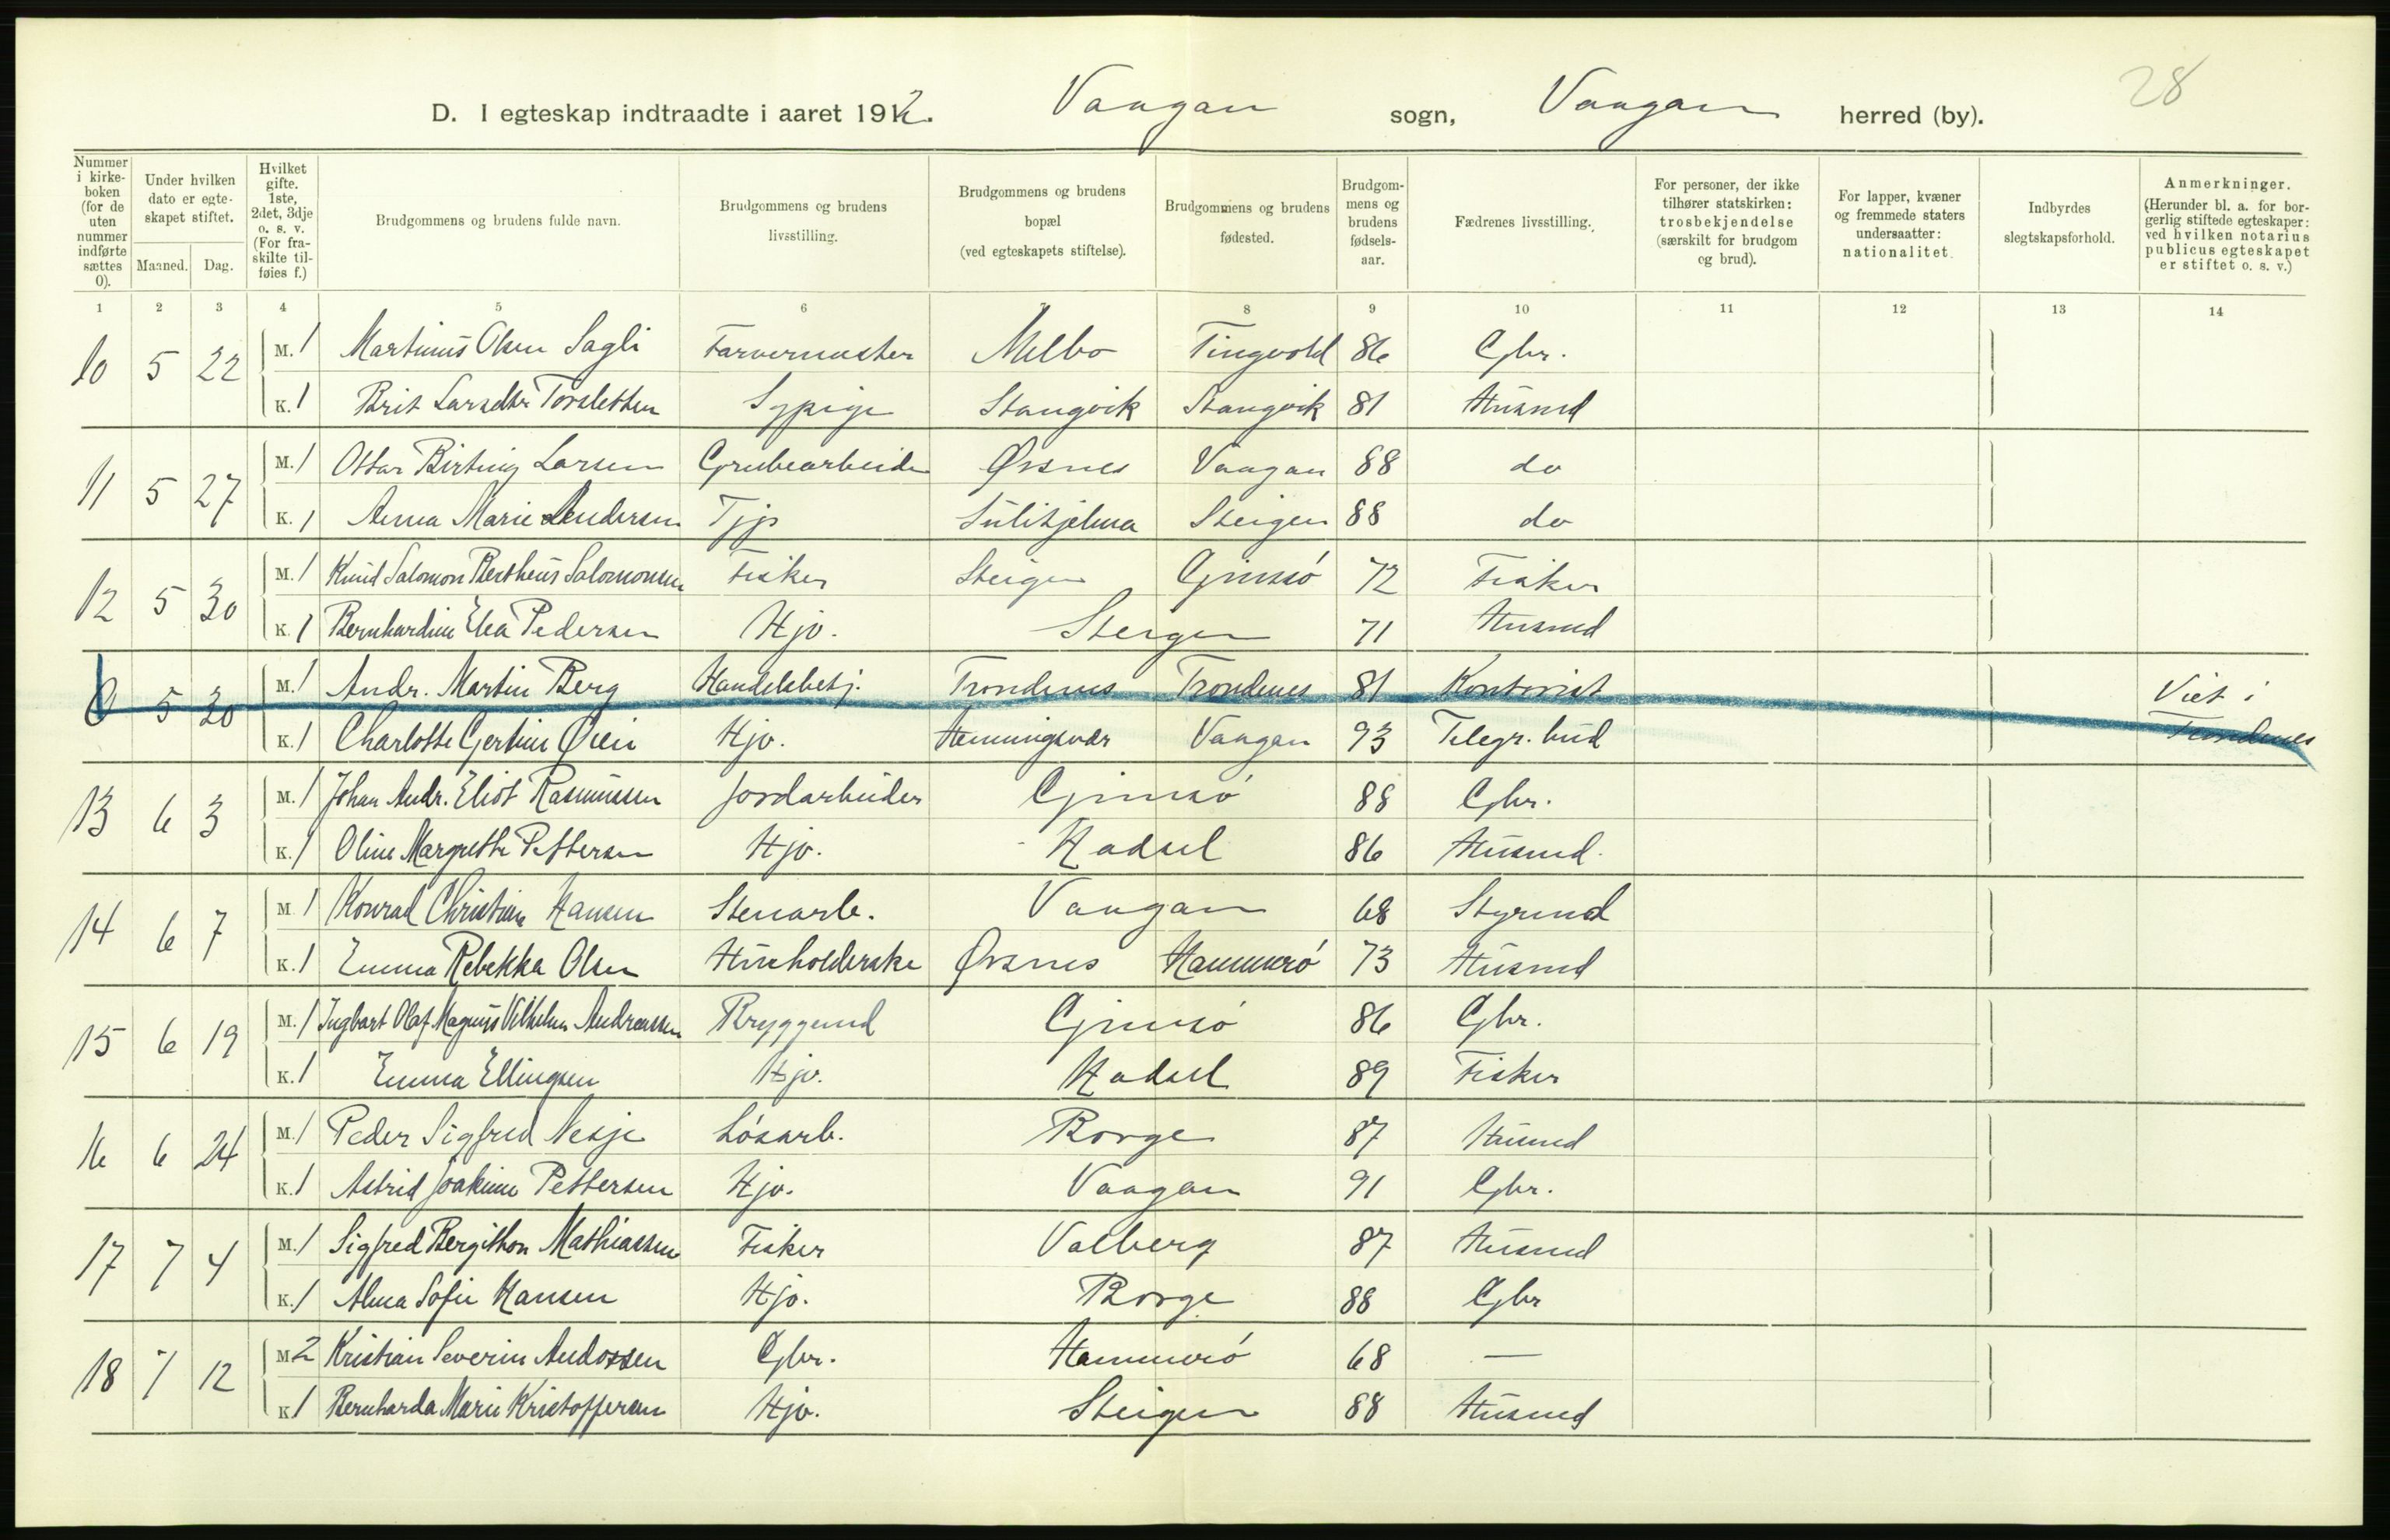 28
D. I egteskap indtraadte i aaret 1912. Vaagan sogn, Vaagan herred (by).
Nummer i kirkeboken (for de uten nummer indførte sættes 0).
Under hvilken dato er egteskapet stiftet.
Maaned. Dag.
Hvilket gifte. 1ste, 2det, 3dje o. s. v. (For fraskilte tilføies f.)
Brudgommens og brudens fulde navn.
Brudgommens og brudens livsstilling.
Brudgommens og brudens bopæl (ved egteskapets stiftelse).
Brudgommens og brudens fødested.
Brudgommens og brudens fødselsaar.
Fædrenes livsstilling.
For personer, der ikke tilhører statskirken: trosbekjendelse (særskilt for brudgom og brud).
For lapper, kvæner og fremmede staters undersaatter: nationalitet.
Indbyrdes slegtskapsforhold.
Anmerkninger. (Herunder bl. a. for borgerlig stiftede egteskaper: ved hvilken notarius publicus egteskapet er stiftet o. s. v.)
1 2 3 4 5 6 7 8 9 10 11 12 13 14
10 5 22 M. 1 Martinus Olsen Sagli Farvermester Melbo Tingvold 86 Gbr.
K. 1 Brit Larsdtr Torsletten Sypige Stangvik Stangvik 81 Husmd
11 5 27 M. 1 Ottar Birting Larsen Grubearbeider Øksnes Vaagan 88 do
K. 1 Anna Marie Andersen Tjp Sulitjelma Steigen 88 do
12 5 30 M. 1 Knud Salomon Bertheus Salomonsen Fisker Steigen Gimsö 72 Fisker
K. 1 Bernhardine Elea Pedersen Hjv. Steigen 71 Husmd
0 5 30 M. 1 Andr. Martin Berg Handelsbetj. Trondenes Trondenes 81 Kontorist Viet i
K. 1 Charlotte Gertine Øien Hjv. Henningsvær Vaagan 93 Telegr. bud Trondenes
13 6 3 M. 1 Johan Andr. Eliot Rasmussen Jordarbeider Gimsö 88 Gbr.
K. 1 Oline Margrethe Pettersen Hjv. Hadsel 86 Husmd.
14 6 7 M. 1 Konrad Christian Hansen Stenarb. Vaagan 68 Styrmd
K. 1 Emma Rebekka Olsen Husholderske Øksnes Hammerö 73 Husmd
15 6 19 M. 1 Ingbart Olaf Magnus Vilhelm Andreassen Bryggemd Gimsö 86 Gbr.
K. 1 Emma Ellingsen Hjv. Hadsel 89 Fisker
16 6 24 M. 1 Peder Sigfred Nesje Lösarb. Borge 87 Husmd
K. 1 Astrid Joakime Pettersen Hjv. Vaagan 91 Gbr.
17 7 4 M. 1 Sigfred Bergithon Mathiassen Fisker Valberg 87 Husmd
K. 1 Alma Sofie Hansen Hjv. Borge 88 Gbr
18 7 12 M 2 Kristian Severin Andorsen Gbr. Hammerö 68 —
K 1 Bernharda Marie Kristoffersen Hjv. Steigen 88 Husmd